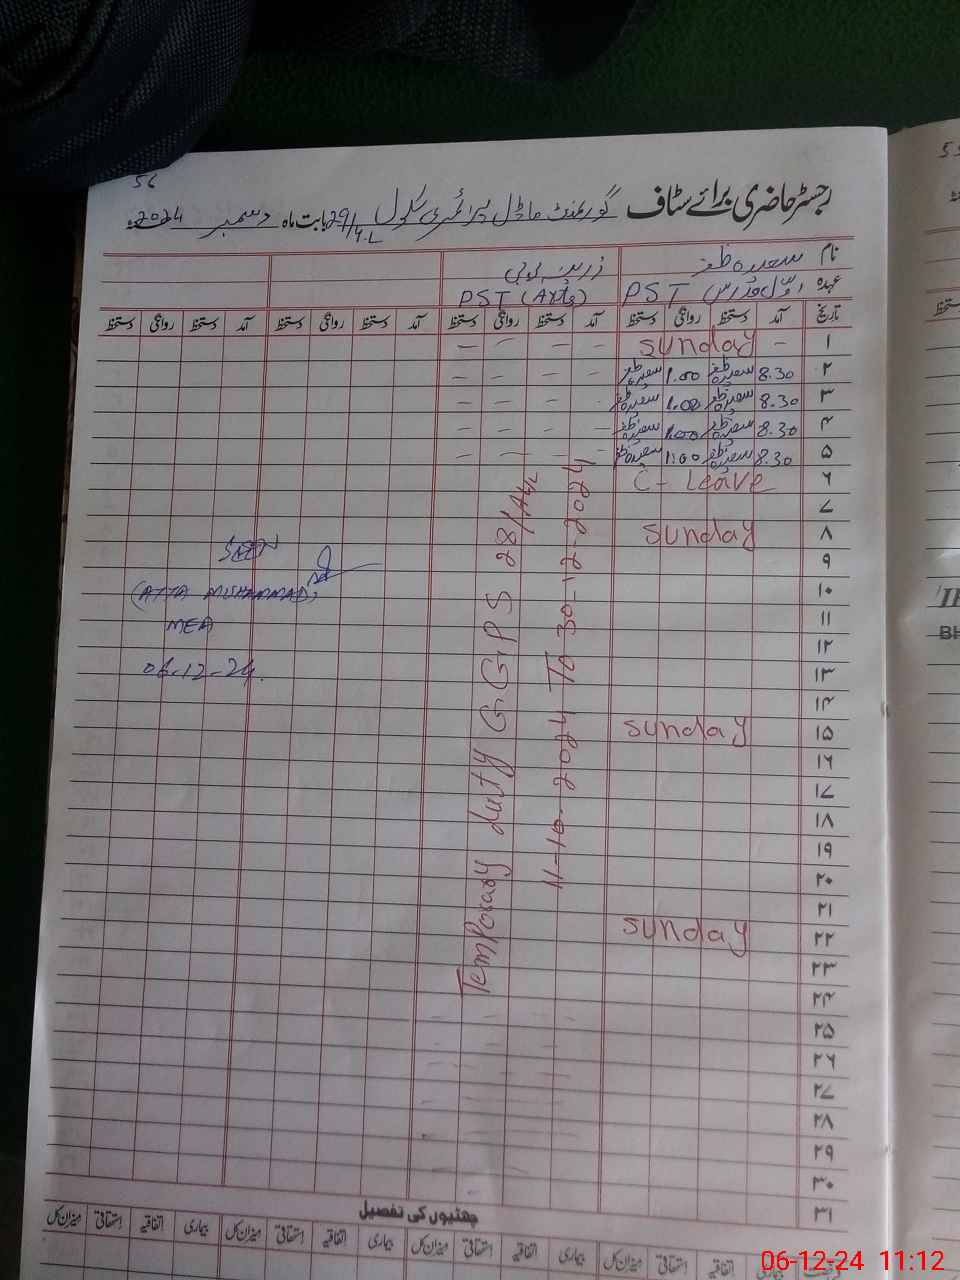 56
رجسٹر حاضری برائے سٹاف گورنمنٹ ماڈل پرائمری سکول 29/4.L بابت ماہ دسمبر 2024ء
نام سعیدہ ظفر
عہدہ PST PST (Arts)
تاریخ آمد دستخط روانگی دستخط آمد دستخط روانگی دستخط آمد دستخط روانگی دستخط آمد دستخط روانگی دستخط
۱ - Sunday
۲ 8.30 سعیدہ ظفر 1.00 سعیدہ ظفر
۳ 8.30 سعیدہ ظفر 1.00 سعیدہ ظفر
۴ 8.30 سعیدہ ظفر 1.00 سعیدہ ظفر
۵ 8.30 سعیدہ ظفر 1:00 سعیدہ ظفر
۶ C- Leave
۷
۸ Sunday
۹
۱۰
۱۱
۱۲
۱۳
۱۴
۱۵ Sunday
۱۶
۱۷
۱۸
۱۹
۲۰
۲۱
۲۲ Sunday
۲۳
۲۴
۲۵
۲۶
۲۷
۲۸
۲۹
۳۰
۳۱
Temporary duty G.G.P.S 28/14.L
11-10-2024 To 30-12-2024
SEEN
(ATTA MUHAMMAD)
MEA
06-12-24.
چھٹیوں کی تفصیل
بیماری اتفاقیہ استحقاقی میزان کل بیماری اتفاقیہ استحقاقی میزان کل بیماری اتفاقیہ استحقاقی میزان کل بیماری اتفاقیہ استحقاقی میزان کل
06-12-24 11:12